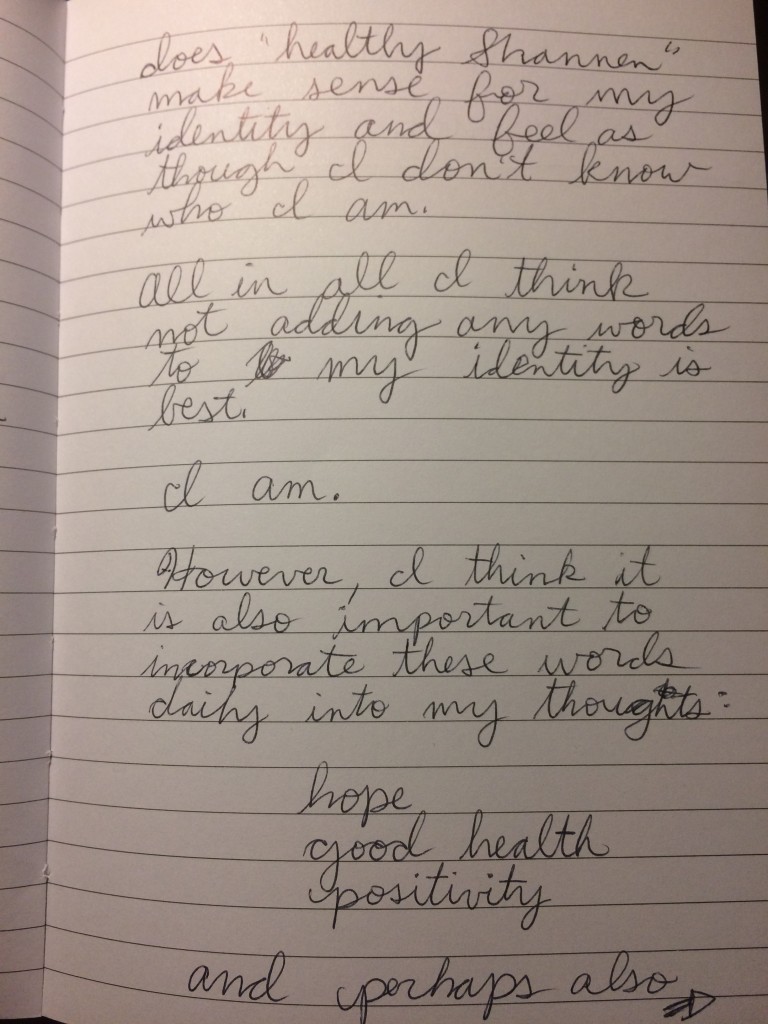 does "healthy Shannen"
make sense for my
identity and feel as
though I don't know
who I am.
All in all I think
not adding any words
to my identity is
best.
I am.
However, I think it
is also important to
incorporate these words
daily into my thoughts:
hope
good health
positivity
and perhaps also